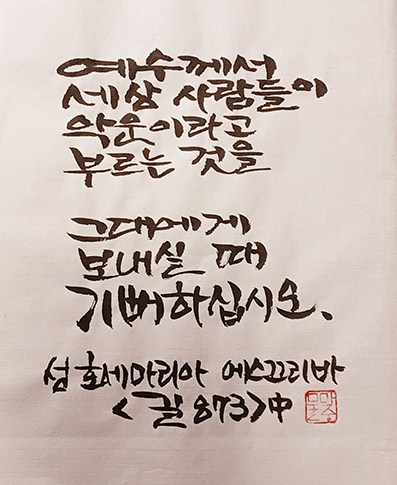 예수께서
세상 사람들이
악운이라고
부르는 것을
그대에게
보내실 때
기뻐하십시오.
성 호세마리아 에스끄리바
<길 873>中